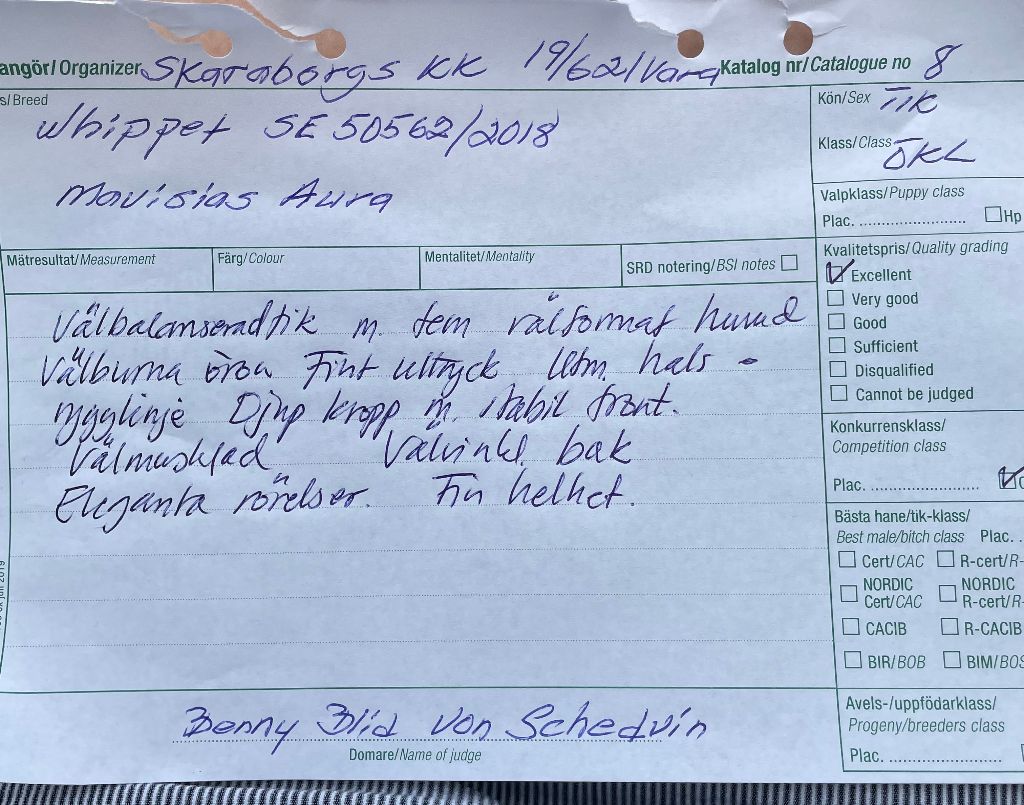 angör/Organizer Skaraborgs KK 19/6 21 Vara Katalog nr/Catalogue no 8
s/Breed
Whippet SE 50562/2018
Movisias Aura
Kön/Sex Tik
Klass/Class ÖKL
Valpklass/Puppy class
Plac. Hp
Mätresultat/Measurement
Färg/Colour
Mentalitet/Mentality
SRD notering/BSI notes
Kvalitetspris/Quality grading
Excellent
Very good
Good
Sufficient
Disqualified
Cannot be judged
Välbalanserad tik m. fem välformat huvud
Välburna öron Fint uttryck Utm. hals -
rygglinje Djup kropp m. stabil front.
Välmusklad Välvinkl. bak
Eleganta rörelser. Fin helhet.
Konkurrensklass/
Competition class
Plac.
Bästa hane/tik-klass/
Best male/bitch class Plac.
Cert/CAC R-cert/R-
NORDIC Cert/CAC NORDIC R-cert/R-
CACIB R-CACIB
BIR/BOB BIM/BOS
Avels-/uppfödarklass/
Progeny/breeders class
Plac.
Benny Blid von Schedvin
Domare/Name of judge